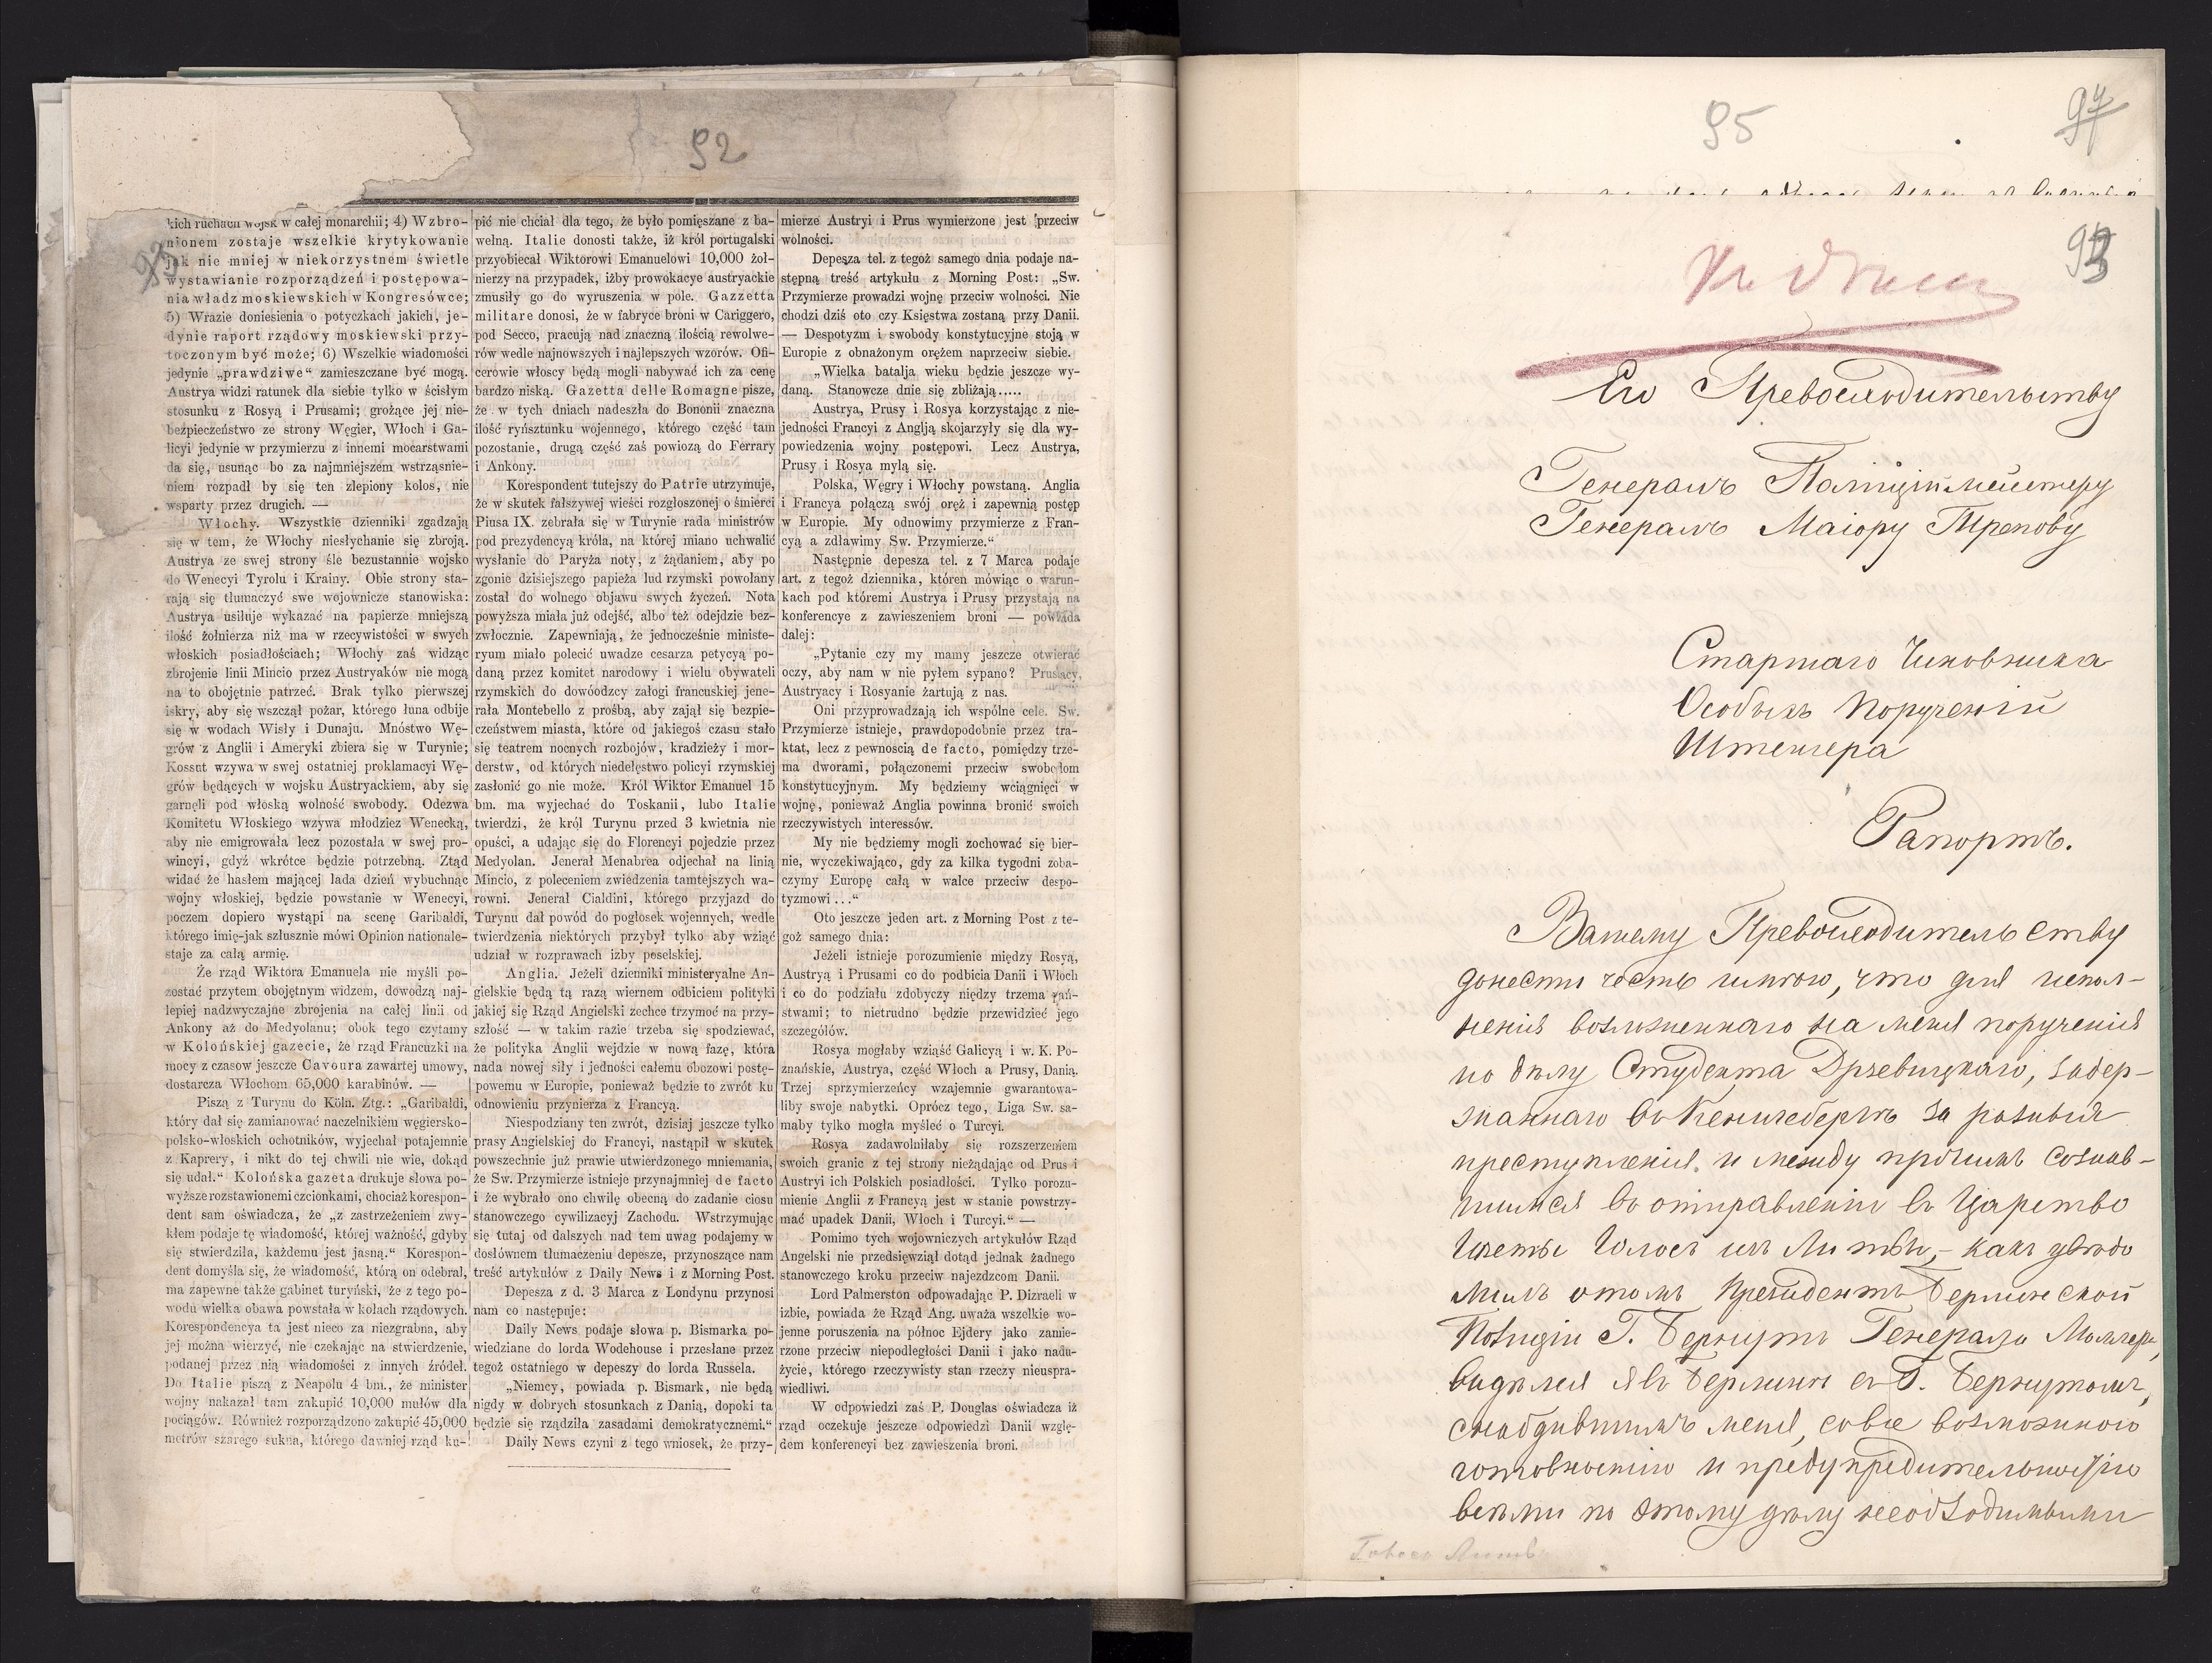 92
93
kich ruchach wojsk w całej monarchii; 4) Wzbro-
nionem zostaje wszelkie krytykowanie
jak nie mniej w niekorzystnem świetle
wystawianie rozporządzeń i postępowa-
nia władz moskiewskich w Kongresówce;
5) Wrazie doniesienia o potyczkach jakich, je-
dynie raport rządowy moskiewski przy-
toczonym być może; 6) Wszelkie wiadomości
jedynie „prawdziwe“ zamieszczane być mogą.
Austrya widzi ratunek dla siebie tylko w ścisłym
stosunku z Rosyą i Prusami; grożące jej nie-
bezpieczeństwo ze strony Węgier, Włoch i Ga-
licyi jedynie w przymierzu z innemi mocarstwami
da się, usunąc bo za najmniejszem wstrząsnie-
niem rozpadł by się ten zlepiony kolos, nie
wsparty przez drugich. —
Włochy. Wszystkie dzienniki zgadzają
się w tem, że Włochy niesłychanie się zbroją.
Austrya ze swej strony śle bezustannie wojsko
do Wenecyi Tyrolu i Krainy. Obie strony sta-
rają się tłumaczyć swe wojownicze stanowiska:
Austrya usiłuje wykazać na papierze mniejszą
ilość żołnierza niż ma w rzecywistości w swych
włoskich posiadłościach; Włochy zaś widząc
zbrojenie linii Mincio przez Austryaków nie mogą
na to obojętnie patrzeć. Brak tylko pierwszej
iskry, aby się wszczął pożar, którego łuna odbije
się w wodach Wisły i Dunaju. Mnóstwo Wę-
grów z Anglii i Ameryki zbiera się w Turynie;
Kossut wzywa w swej ostatniej proklamacyi Wę-
grów będących w wojsku Austryackiem, aby się
garnęli pod włoską wolność swobody. Odezwa
Komitetu Włoskiego wzywa młodziez Wenecką,
aby nie emigrowała lecz pozostała w swej pro-
wincyi, gdyż wkrótce będzie potrzebną. Ztąd
widać że hasłem mającej lada dzień wybuchnąc
wojny włoskiej, będzie powstanie w Wenecyi,
poczem dopiero wystąpi na scenę Garibaldi,
którego imię-jak szłusznie mówi Opinion nationale-
staje za całą armię.
Że rząd Wiktora Emanuela nie myśli po-
zostać przytem obojętnym widzem, dowodzą naj-
lepiej nadzwyczajne zbrojenia na całej linii od
Ankony aż do Medyolanu; obok tego czytamy
w Kolońskiej gazecie, że rząd Francuzki na
mocy z czasow jeszcze Cavoura zawartej umowy,
dostarcza Włochom 65,000 karabinów. —
Piszą z Turynu do Köln. Ztg.: „Garibaldi,
który dał się zamianować naczelnikiem węgiersko-
polsko-włoskich ochotników, wyjechał potajemnie
z Kaprery, i nikt do tej chwili nie wie, dokąd
się udał.“ Kolońska gazeta drukuje słowa po-
wyższe rozstawionemi czcionkami, chociaż korespon-
dent sam oświadcza, że „z zastrzeżeniem zwy-
kłem podaje tę wiadomość, której ważność, gdyby
się stwierdziła, każdemu jest jasną.“ Korespon-
dent domyśla się, że wiadomość, którą on odebrał,
ma zapewne także gabinet turyński, że z tego po-
wodu wielka obawa powstała w kołach rządowych.
Korespondencya ta jest nieco za niezgrabna, aby
jej można wierzyć, nie czekając na stwierdzenie,
podanej przez nią wiadomości z innych źródeł.
Do Italie piszą z Neapolu 4 bm., że minister
wojny nakazał tam zakupić 10,000 mułów dla
pociągów. Również rozporządzono zakupić 45,000
metrów szarego sukna, którego dawniej rząd ku-
pić nie chciał dla tego, że było pomięszane z ba-
wełną. Italie donosti także, iż król portugalski
przyobiecał Wiktorowi Emanuelowi 10,000 żoł-
nierzy na przypadek, iżby prowokacye austryackie
zmusiły go do wyruszenia w pole. Gazzetta
militare donosi, że w fabryce broni w Cariggero,
pod Secco, pracują nad znaczną ilością rewolwe-
rów wedle najnowszych i najlepszych wzorów. Ofi-
cerowie włoscy będą mogli nabywać ich za cenę
bardzo niską. Gazetta delle Romagne pisze,
że w tych dniach nadeszła do Bononii znaczna
ilość ryńsztunku wojennego, którego część tam
pozostanie, drugą część zaś powiozą do Ferrary
i Ankony.
Korespondent tutejszy do Patrie utrzymuje,
że w skutek fałszywej wieści rozgłoszonej o śmierci
Piusa IX. zebrała się w Turynie rada ministrów
pod prezydencyą króla, na której miano uchwalić
wysłanie do Paryża noty, z żądaniem, aby po
zgonie dzisiejszego papieża lud rzymski powołany
został do wolnego objawu swych życzeń. Nota
powyższa miała już odejść, albo też odejdzie bez-
zwłocznie. Zapewniają, że jednocześnie ministe-
ryum miało polecić uwadze cesarza petycyą po-
daną przez komitet narodowy i wielu obywateli
rzymskich do dowóodzcy załogi francuskiej jene-
rała Montebello z prośbą, aby zajął się bezpie-
czeństwem miasta, które od jakiegoś czasu stało
się teatrem nocnych rozbojów, kradzieży i mor-
derstw, od których niedełęstwo policyi rzymskiej
zasłonić go nie może. Król Wiktor Emanuel 15
bm. ma wyjechać do Toskanii, lubo Italie
twierdzi, że król Turynu przed 3 kwietnia nie
opuści, a udając się do Florencyi pojedzie przez
Medyolan. Jenerał Menabrea odjechał na linią
Mincio, z poleceniem zwiedzenia tamtejszych wa-
rowni. Jenerał Cialdini, którego przyjazd do
Turynu dał powód do pogłosek wojennych, wedle
twierdzenia niektórych przybył tylko aby wziąć
udział w rozprawach izby poselskiej.
Anglia. Jeżeli dzienniki ministeryalne An-
gielskie będą tą razą wiernem odbiciem polityki
jakiej się Rząd Angielski zechce trzymoć na przy-
szłość — w takim razie trzeba się spodziewać,
że polityka Anglii wejdzie w nową fazę, która
nada nowej siły i jedności całemu obozowi postę-
powemu w Europie, ponieważ będzie to zwrót ku
odnowieniu przynierza z Francyą.
Niespodziany ten zwrót, dzisiaj jeszcze tylko
prasy Angielskiej do Francyi, nastąpił w skutek
powszechnie już prawie utwierdzonego mniemania,
że Sw. Przymierze istnieje przynajmniej de facto
i że wybrało ono chwilę obecną do zadanie ciosu
stanowczego cywilizacyj Zachodu. Wstrzymując
się tutaj od dalszych nad tem uwag podajemy w
dosłównem tłumaczeniu depesze, przynoszące nam
treść artykułów z Daily News i z Morning Post.
Depesza z d. 3 Marca z Londynu przynosi
nam co następuje:
Daily News podaje słowa p. Bismarka po-
wiedziane do lorda Wodehouse i przesłane przez
tegoż ostatniego w depeszy do lorda Russela.
„Niemcy, powiada p. Bismark, nie będą
nigdy w dobrych stosunkach z Danią, dopoki ta
będzie się rządziła zasadami demokratycznemi.“
Daily News czyni z tego wniosek, że przy-
mierze Austryi i Prus wymierzone jest przeciw
wolności.
Depesza tel. z tegoż samego dnia podaje na-
stępną treść artykułu z Morning Post: „Sw.
Przymierze prowadzi wojnę przeciw wolności. Nie
chodzi dziś oto czy Księstwa zostaną przy Danii.
— Despotyzm i swobody konstytucyjne stoją w
Europie z obnażonym orężem naprzeciw siebie.
„Wielka batalja wieku będzie jeszcze wy-
daną. Stanowcze dnie się zbliżają.....
Austrya, Prusy i Rosya korzystając z nie-
jedności Francyi z Anglją skojarzyły się dla wy-
powiedzenia wojny postępowi. Lecz Austrya,
Prusy i Rosya mylą się.
Polska, Węgry i Włochy powstaną. Anglia
i Francya połączą swój oręż i zapewnią postęp
w Europie. My odnowimy przymierze z Fran-
cyą a zdławimy Sw. Przymierze.“
Następnie depesza tel. z 7 Marca podaje
art. z tegoż dziennika, któren mówiąc o warun-
kach pod któremi Austrya i Prusy przystają na
konferencye z zawieszeniem broni — powiada
dalej:
„Pytanie czy my mamy jeszcze otwierać
oczy, aby nam w nie pyłem sypano? Prusacy,
Austryacy i Rosyanie żartują z nas.
Oni przyprowadzają ich wspólne cele. Sw.
Przymierze istnieje, prawdopodobnie przez tra-
ktat, lecz z pewnością de facto, pomiędzy trze-
ma dworami, połączonemi przeciw swobodom
konstytucyjnym. My będziemy wciągnięci w
wojnę, ponieważ Anglia powinna bronić swoich
rzeczywistych interessów.
My nie będziemy mogli zochować się bier-
nie, wyczekiwająco, gdy za kilka tygodni zoba-
czymy Europę całą w walce przeciw despo-
tyzmowi ...“
Oto jeszcze jeden art. z Morning Post z te-
goż samego dnia:
Jeżeli istnieje porozumienie między Rosyą,
Austryą i Prusami co do podbicia Danii i Włoch
i co do podziału zdobyczy niędzy trzema pań-
stwami; to nietrudno będzie przewidzieć jego
szczegółów.
Rosya mogłaby wziąść Galicyą i w. K. Po-
znańskie, Austrya, część Włoch a Prusy, Danią.
Trzej sprzymierzeńcy wzajemnie gwarantowa-
liby swoje nabytki. Oprócz tego, Liga Sw. sa-
maby tylko mogła myśleć o Turcyi.
Rosya zadawolniłaby się rozszerzeniem
swoich granic z tej strony nieżądając od Prus i
Austryi ich Polskich posiadłości. Tylko porozu-
mienie Anglii z Francyą jest w stanie powstrzy-
mać upadek Danii, Włoch i Turcyi.“ —
Pomimo tych wojowniczych artykułów Rząd
Angelski nie przedsięwziął dotąd jednak żadnego
stanowczego kroku przeciw najezdzcom Danii.
Lord Palmerston odpowadając P. Dizraeli w
izbie, powiada że Rząd Ang. uważa wszelkie wo-
jenne poruszenia na północ Ejdery jako zamie-
rzone przeciw niepodległości Danii i jako nadu-
życie, którego rzeczywisty stan rzeczy nieuspra-
wiedliwi.
W odpowiedzi zaś P. Douglas oświadcza iż
rząd oczekuje jeszcze odpowiedzi Danii wzglę-
dem konferencyi bez zawieszenia broni.
95
93
Его Превосходительству
Генералъ Полиціймейстеру
Генералъ Маіору Трепову
Старшаго Чиновника
Особыхъ Порученій
Штенгера
Рапортъ.
Вашему Превосходительству
донести честь имѣю, что для испол-
ненія возложеннаго на меня порученія
по дѣлу Студента Држевицкаго, задер-
жаннаго въ Кенигсбергѣ за разныя
преступленія и между прочимъ сознав-
шимся въ отправленіи въ Царство
газеты Голосъ изъ Литвы, – какъ увѣдо
милъ о томъ Президентъ Берлинской
Полиціи Г. Бернутъ Генерала Моллера,
видѣлся я въ Берлинѣ съ Г. Бернутомъ,
снабдившимъ меня, со всею возможною
готовностію и предупредительностію
всѣми по этому дѣлу необходимыми